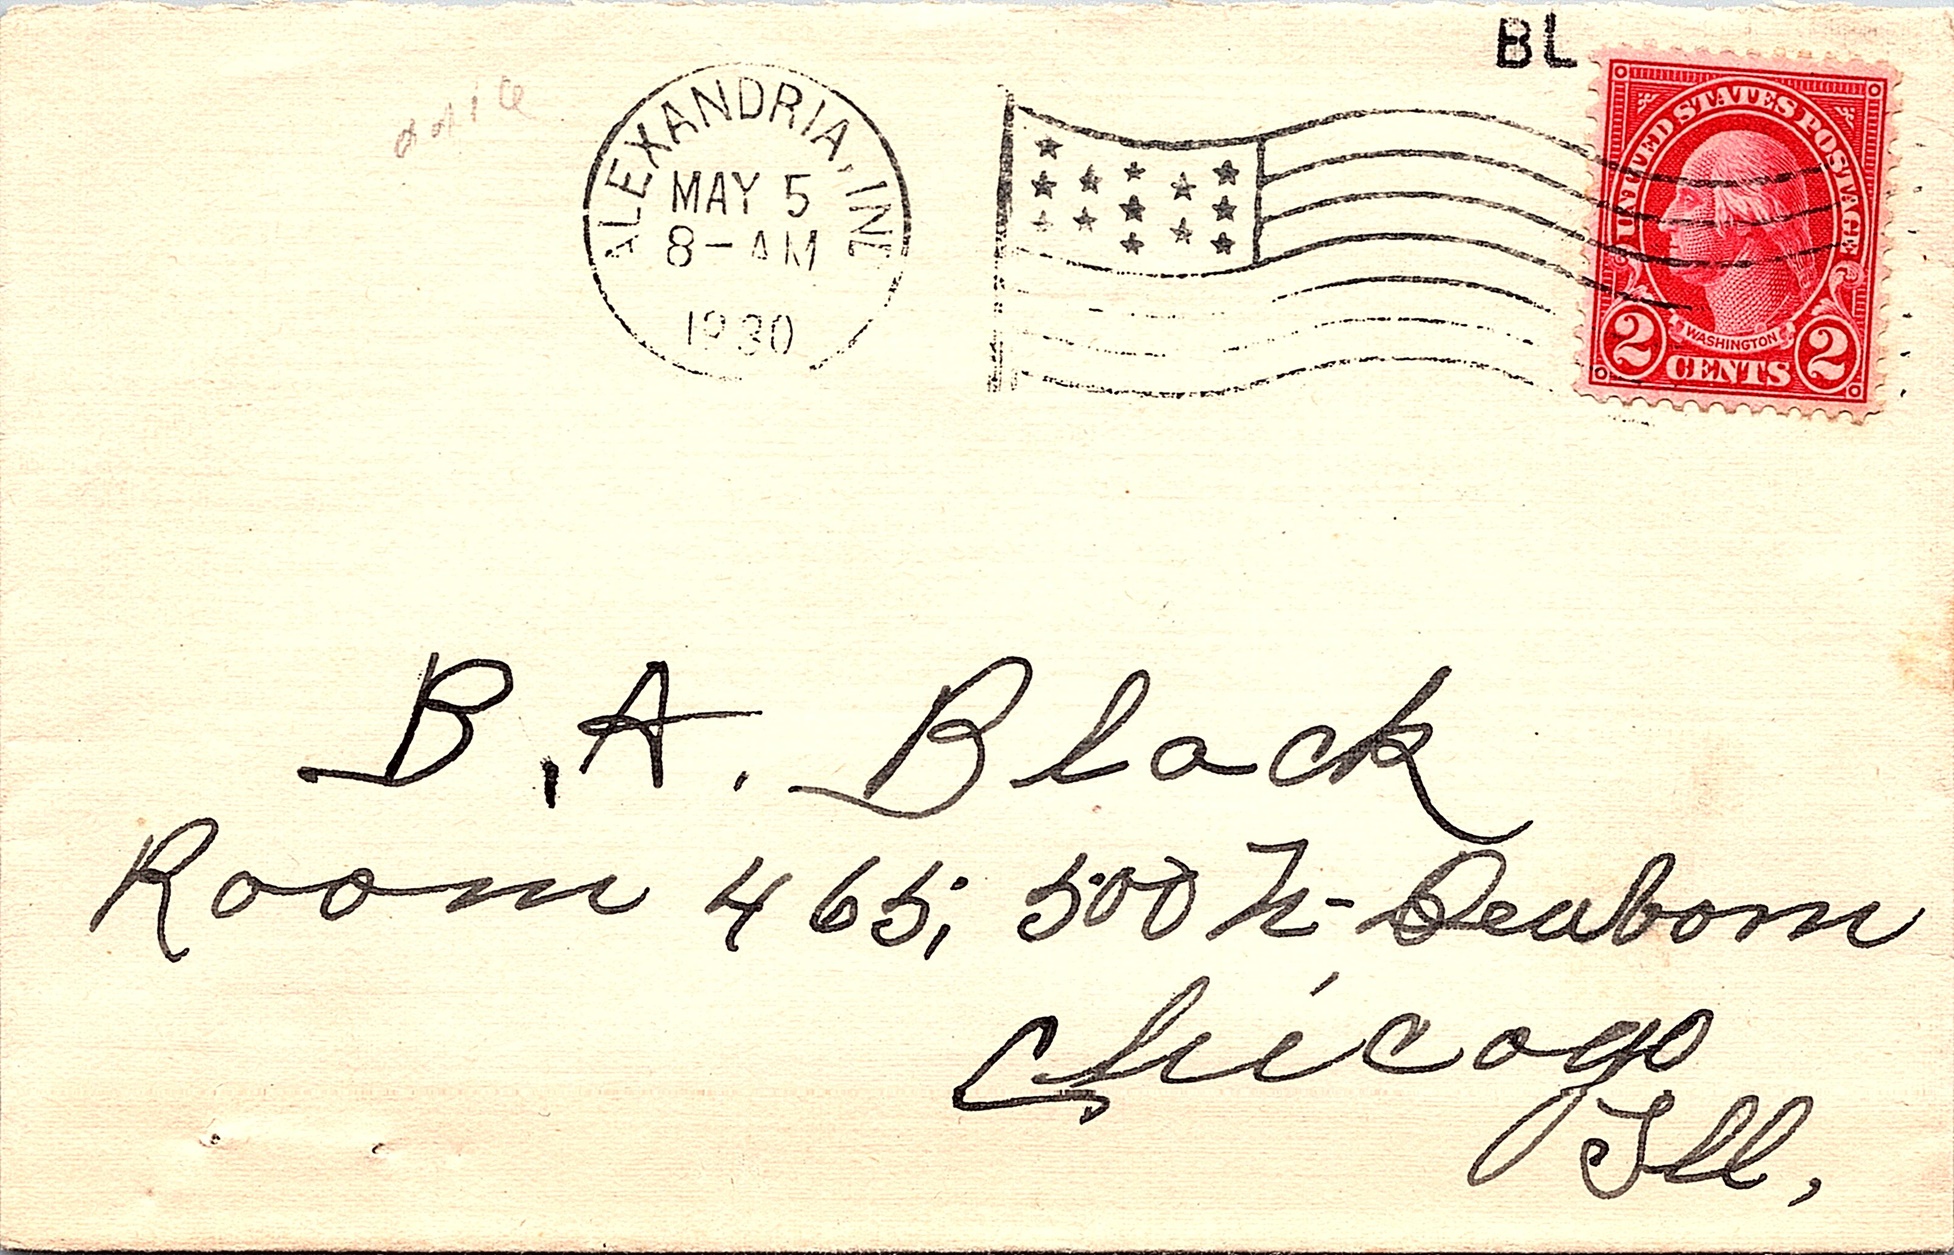 BL
ALEXANDRIA, IND.
MAY 5
8-AM
1930
UNITED STATES POSTAGE
WASHINGTON
2 CENTS 2
B. A. Black
Room 465, 500 N- Dearborn
Chicago
Ill.